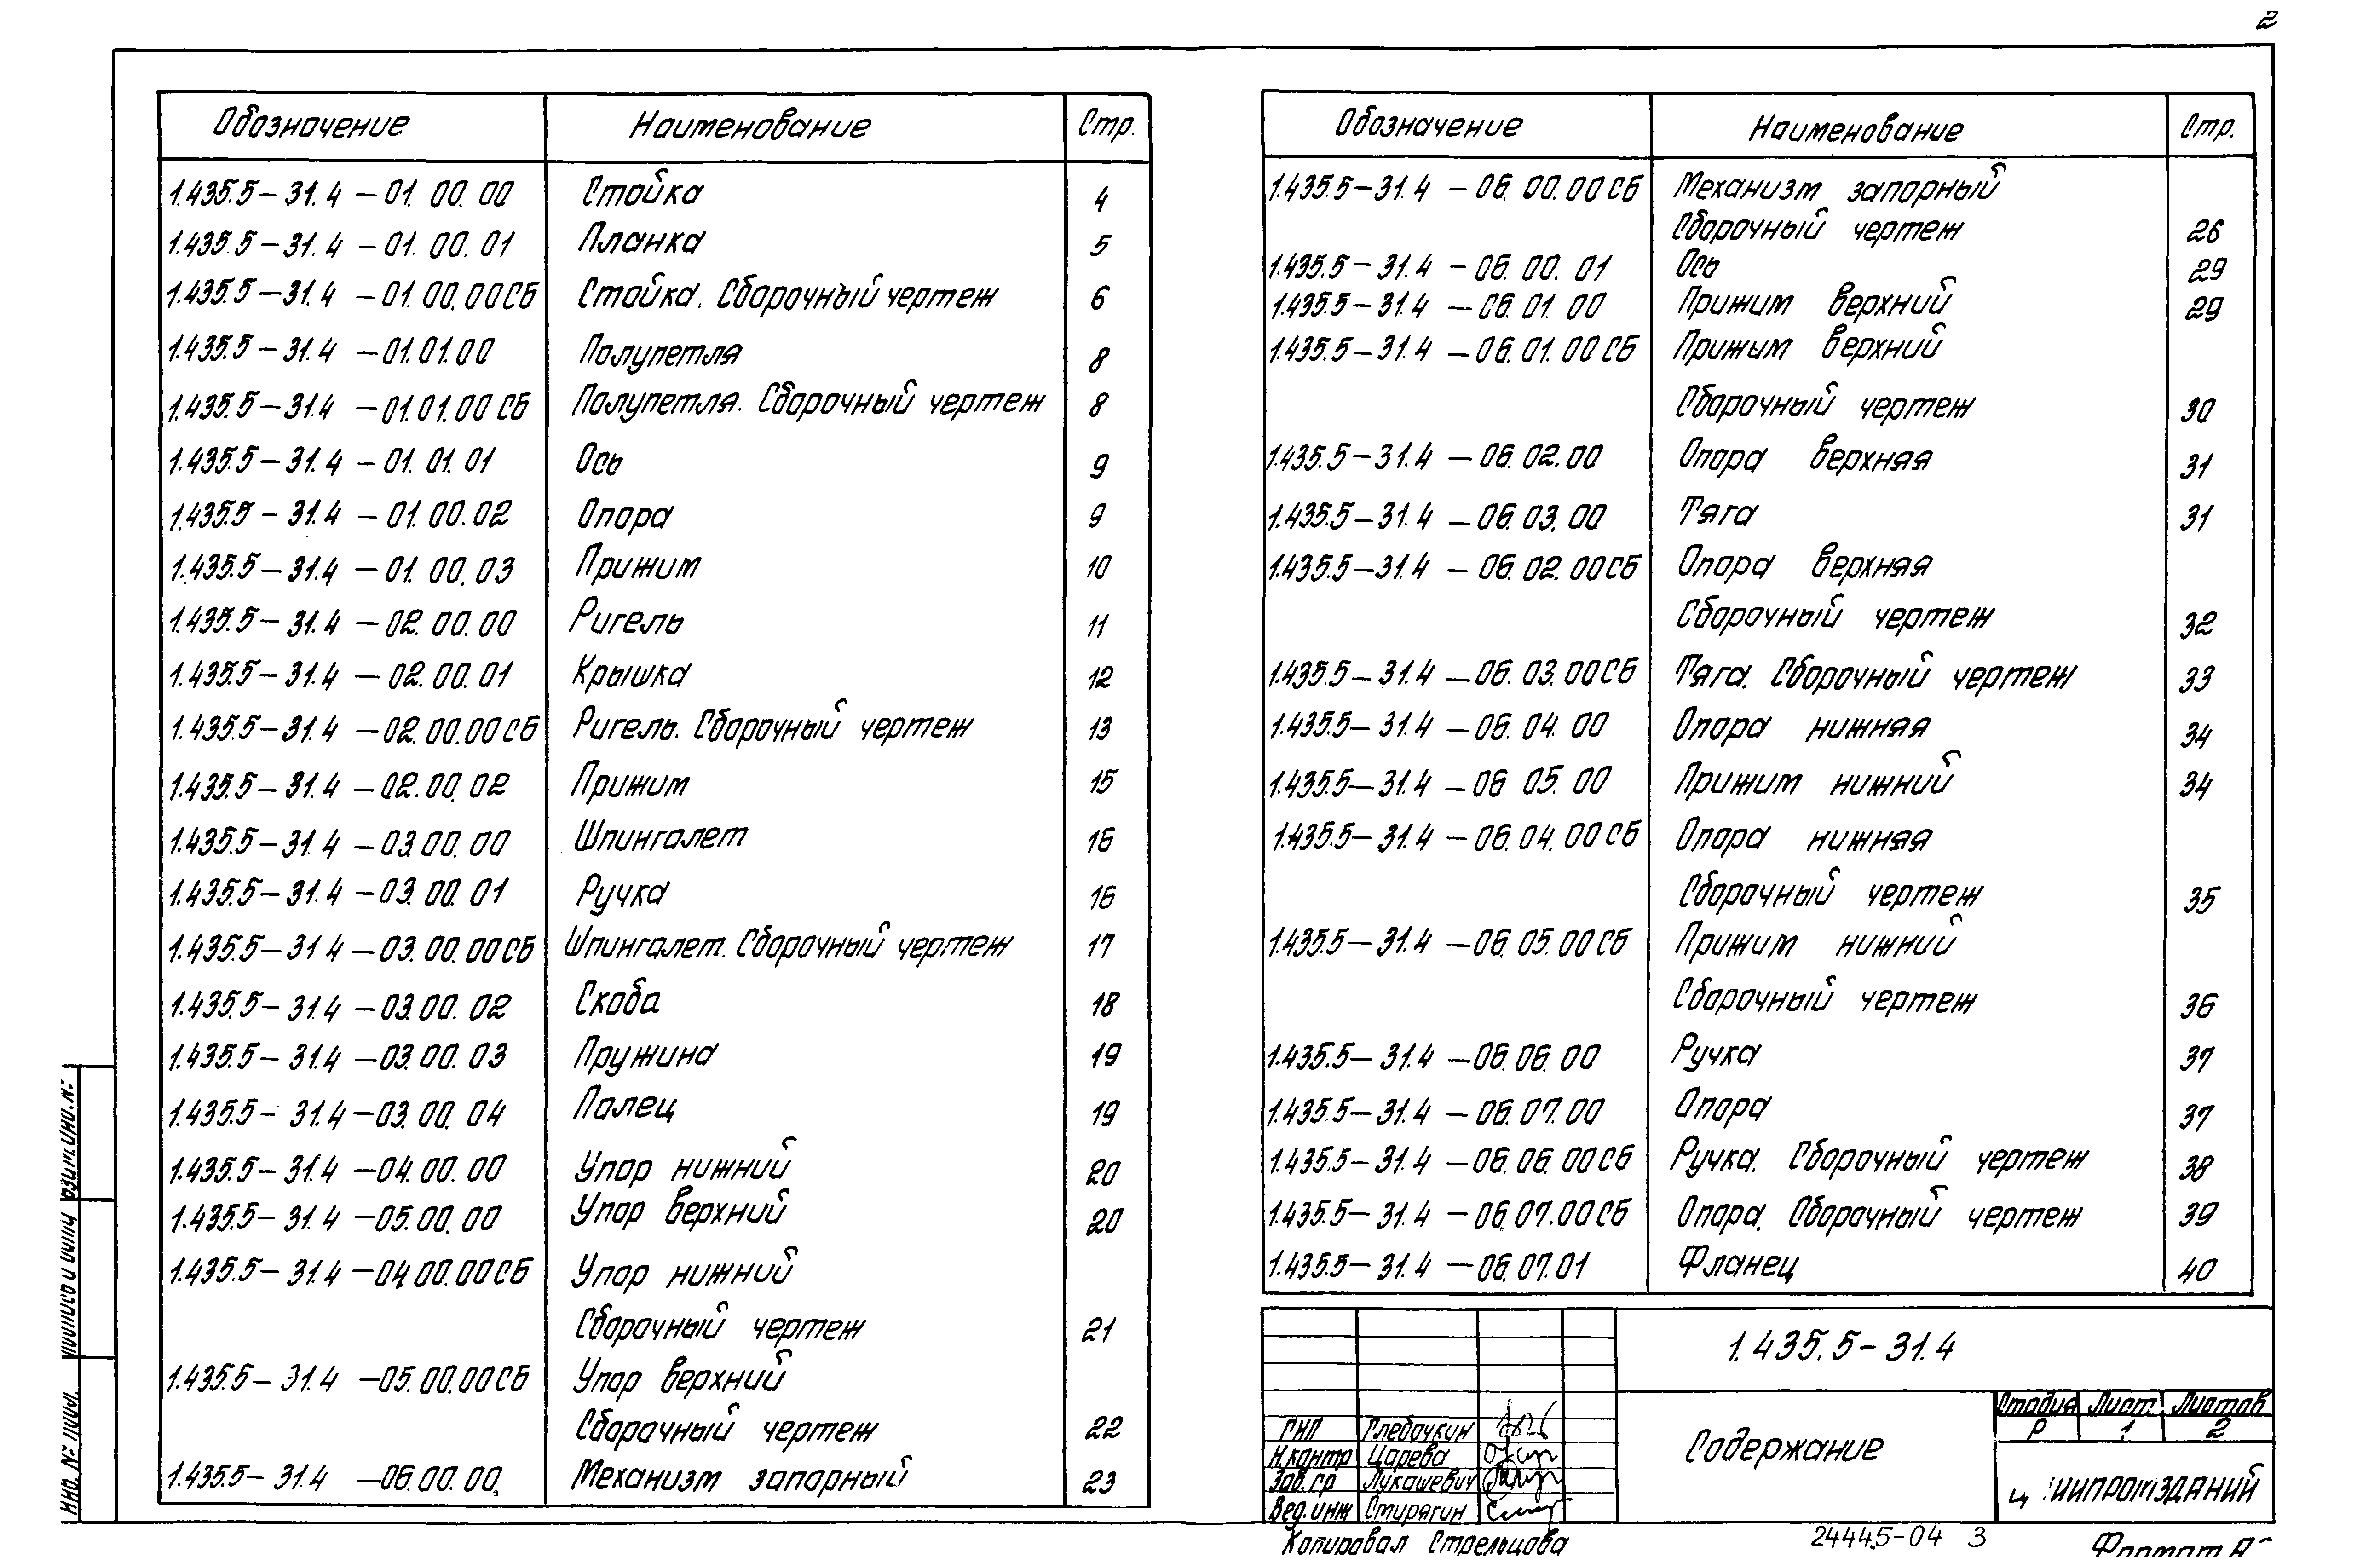 2
Обозначение Наименование Стр.
1.435.5-31.4-01.00.00 Стойка 4
1.435.5-31.4-01.00.01 Планка 5
1.435.5-31.4-01.00.00СБ Стойка. Сборочный чертеж 6
1.435.5-31.4-01.01.00 Полупетля 8
1.435.5-31.4-01.01.00СБ Полупетля. Сборочный чертеж 8
1.435.5-31.4-01.01.01 Ось 9
1.435.5-31.4-01.00.02 Опора 9
1.435.5-31.4-01.00.03 Прижим 10
1.435.5-31.4-02.00.00 Ригель 11
1.435.5-31.4-02.00.01 Крышка 12
1.435.5-31.4-02.00.00СБ Ригель. Сборочный чертеж 13
1.435.5-31.4-02.00.02 Прижим 15
1.435.5-31.4-03.00.00 Шпингалет 16
1.435.5-31.4-03.00.01 Ручка 16
1.435.5-31.4-03.00.00СБ Шпингалет. Сборочный чертеж 17
1.435.5-31.4-03.00.02 Скоба 18
1.435.5-31.4-03.00.03 Пружина 19
1.435.5-31.4-03.00.04 Палец 19
1.435.5-31.4-04.00.00 Упор нижний 20
1.435.5-31.4-05.00.00 Упор верхний 20
1.435.5-31.4-04.00.00СБ Упор нижний
Сборочный чертеж 21
1.435.5-31.4-05.00.00СБ Упор верхний
Сборочный чертеж 22
1.435.5-31.4-06.00.00 Механизм запорный 23
Обозначение Наименование Стр.
1.435.5-31.4-06.00.00СБ Механизм запорный
Сборочный чертеж 26
1.435.5-31.4-06.00.01 Ось 29
1.435.5-31.4-06.01.00 Прижим верхний 29
1.435.5-31.4-06.01.00СБ Прижим верхний
Сборочный чертеж 30
1.435.5-31.4-06.02.00 Опора верхняя 31
1.435.5-31.4-06.03.00 Тяга 31
1.435.5-31.4-06.02.00СБ Опора верхняя
Сборочный чертеж 32
1.435.5-31.4-06.03.00СБ Тяга. Сборочный чертеж 33
1.435.5-31.4-06.04.00 Опора нижняя 34
1.435.5-31.4-06.05.00 Прижим нижний 34
1.435.5-31.4-06.04.00СБ Опора нижняя
Сборочный чертеж 35
1.435.5-31.4-06.05.00СБ Прижим нижний
Сборочный чертеж 36
1.435.5-31.4-06.06.00 Ручка 37
1.435.5-31.4-06.07.00 Опора 37
1.435.5-31.4-06.06.00СБ Ручка. Сборочный чертеж 38
1.435.5-31.4-06.07.00СБ Опора. Сборочный чертеж 39
1.435.5-31.4-06.07.01 Фланец 40
1.435.5-31.4
Содержание
Стадия Лист Листов
Р 1 2
ГИП Глебочкин
Н.контр Царева
Зав.гр Лукашевич
Вед.инж Стурягин
Копировал Стрельцова
24445-04 3